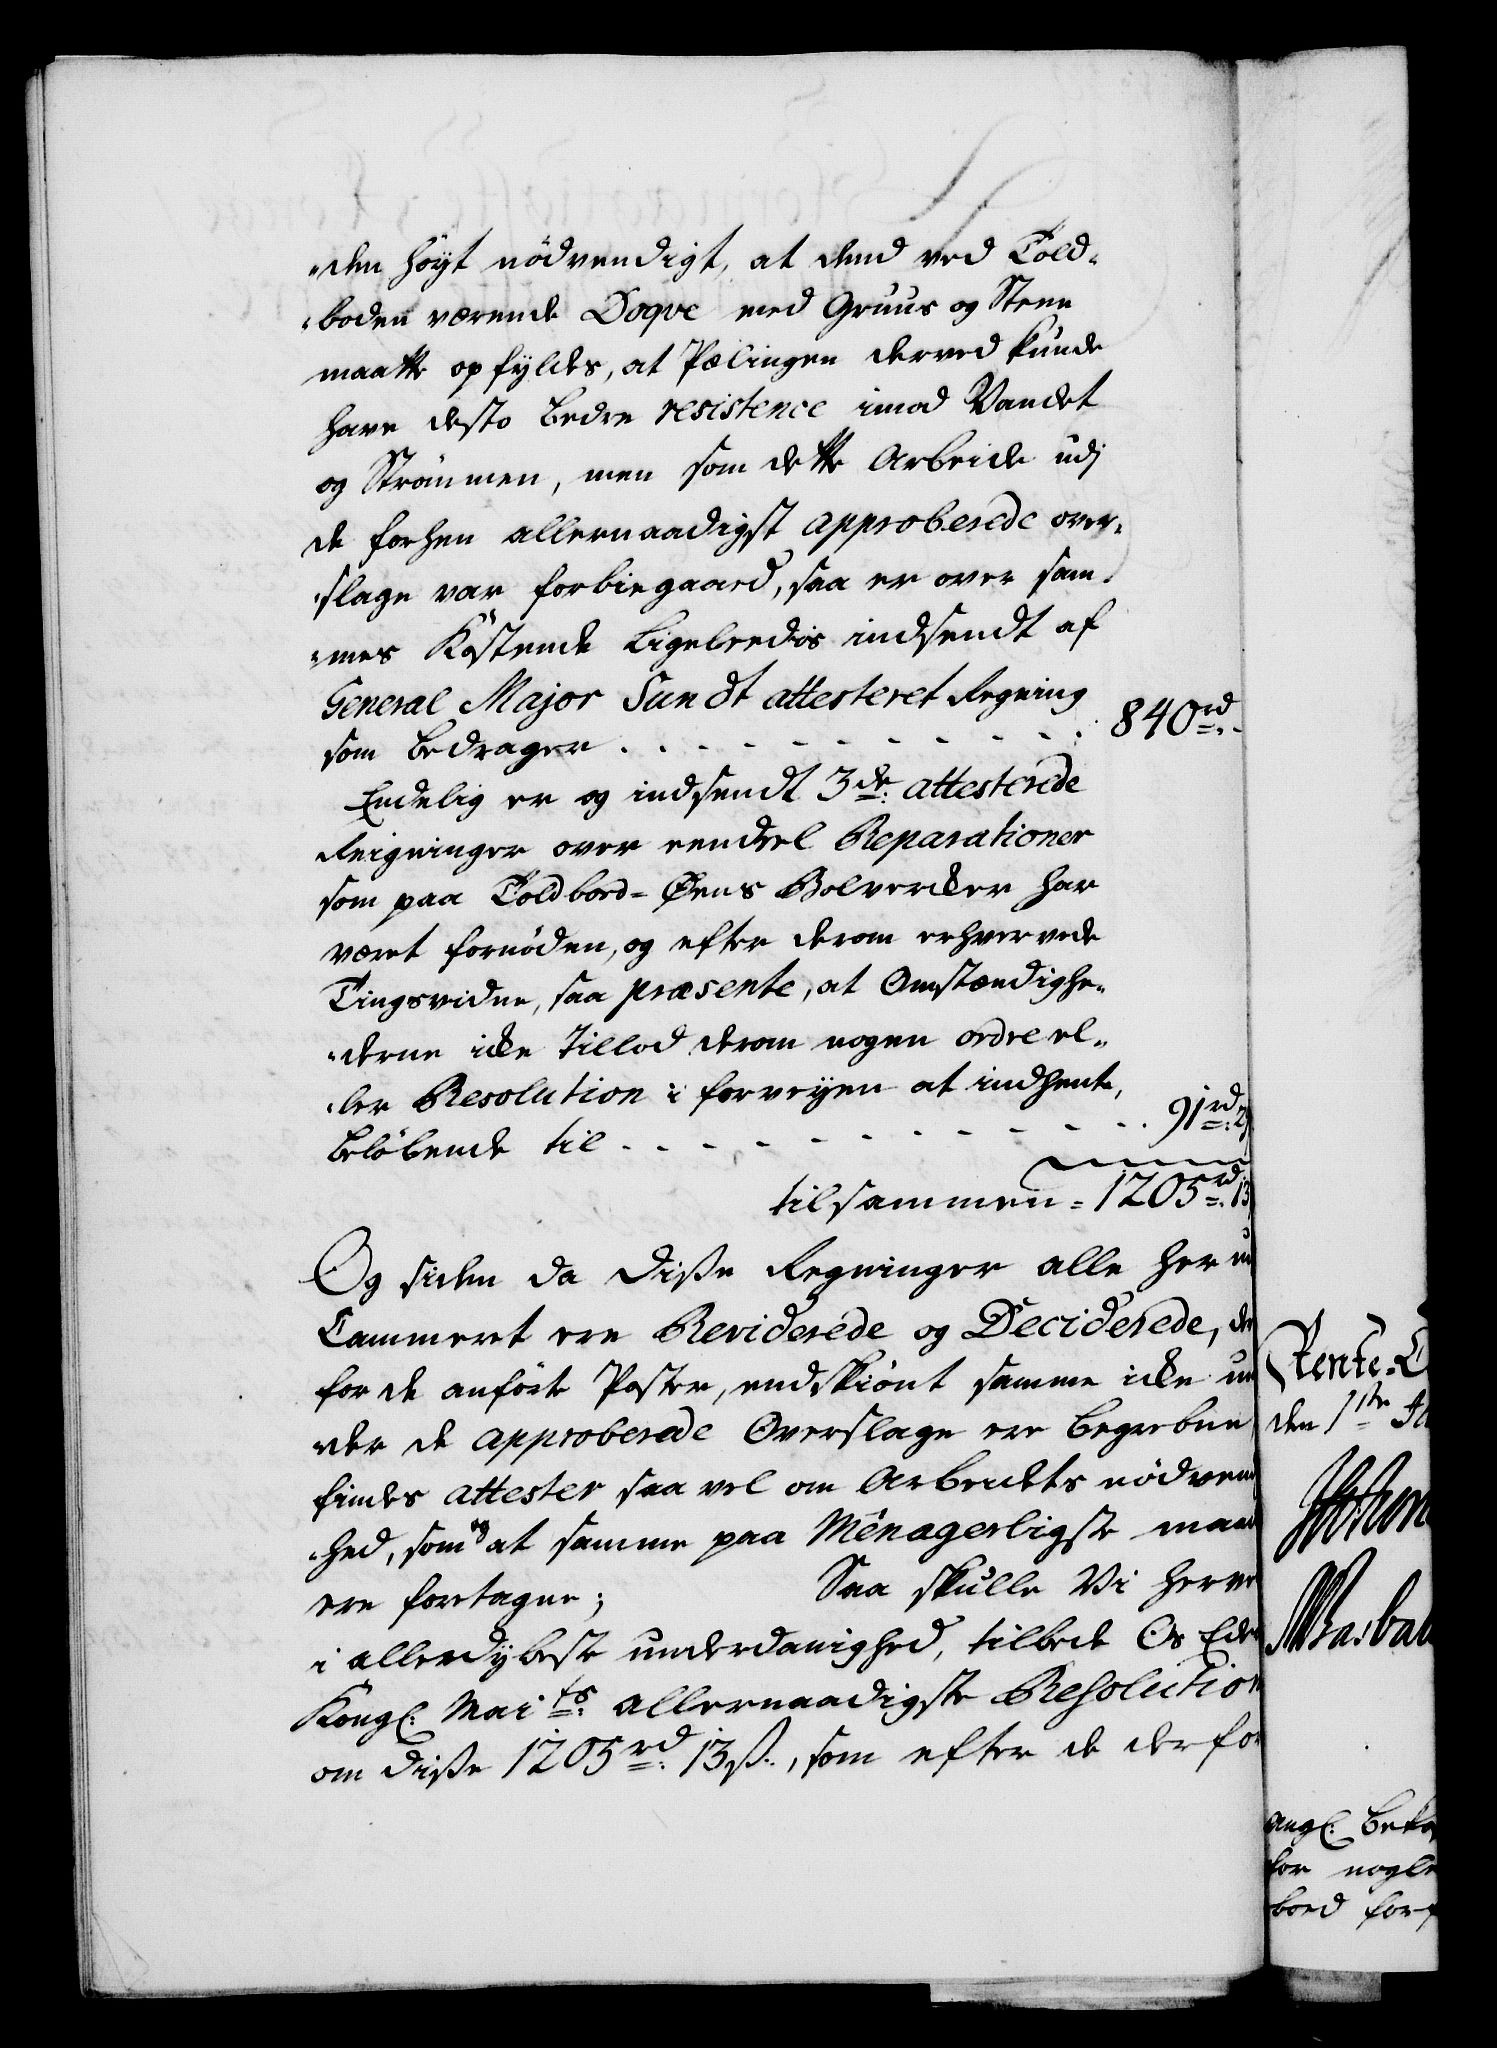 "den høyt nødvendigt, at dend ved Told-
"boden værende Doqve med Gruus og Steen
maatte opfyldes, at Pælingen derved kunde
have desto bedre resistence imod Vandet
og Strømmen, men som dette Arbeide udj
de forhen allernaadigst approberede over-
"slage var forbiegaaed, saa er over sam-
"mes Kostende ligeleedis indsendt af
General Major Sundt attesteret Regning
som bedrager . . . . . . . . . . 840rd. -
Endelig er og indsendt 3de: attesterede
Reigninger over eendeel Reparationer
som paa Toldbod-Øens Bolvercker har
været fornøden, og efter derom erhvervede
Tingsvidne, saa præsente, at Omstændighe-
"derne icke tillod derom nogen ordre el-
"ler Resolution i forveyen at indhente,
beløbende til . . . . . . . . . . 91rd:
tilsammen = 1205rd: 13
Og siden da disse Regninger alle her
Cammeret ere Reviderede og Deciderede,
for de anførte Poster, endskiønt samme icke un
"der de approberede Overslage ere begrebne
findes attester saa vel om Arbeidets nødven
"hed, som og at samme paa Menagerligste maad
ere foretagne; Saa skulle Vi herve
i allerdybeste underdanighed, tilbede Os Ede
Kongl: Maits: allernaadigste Resolution
om disse 1205rd: 13ß., som efter de derfor
Rente-C
den 1ste
angl: beko
for nogle
bod forf